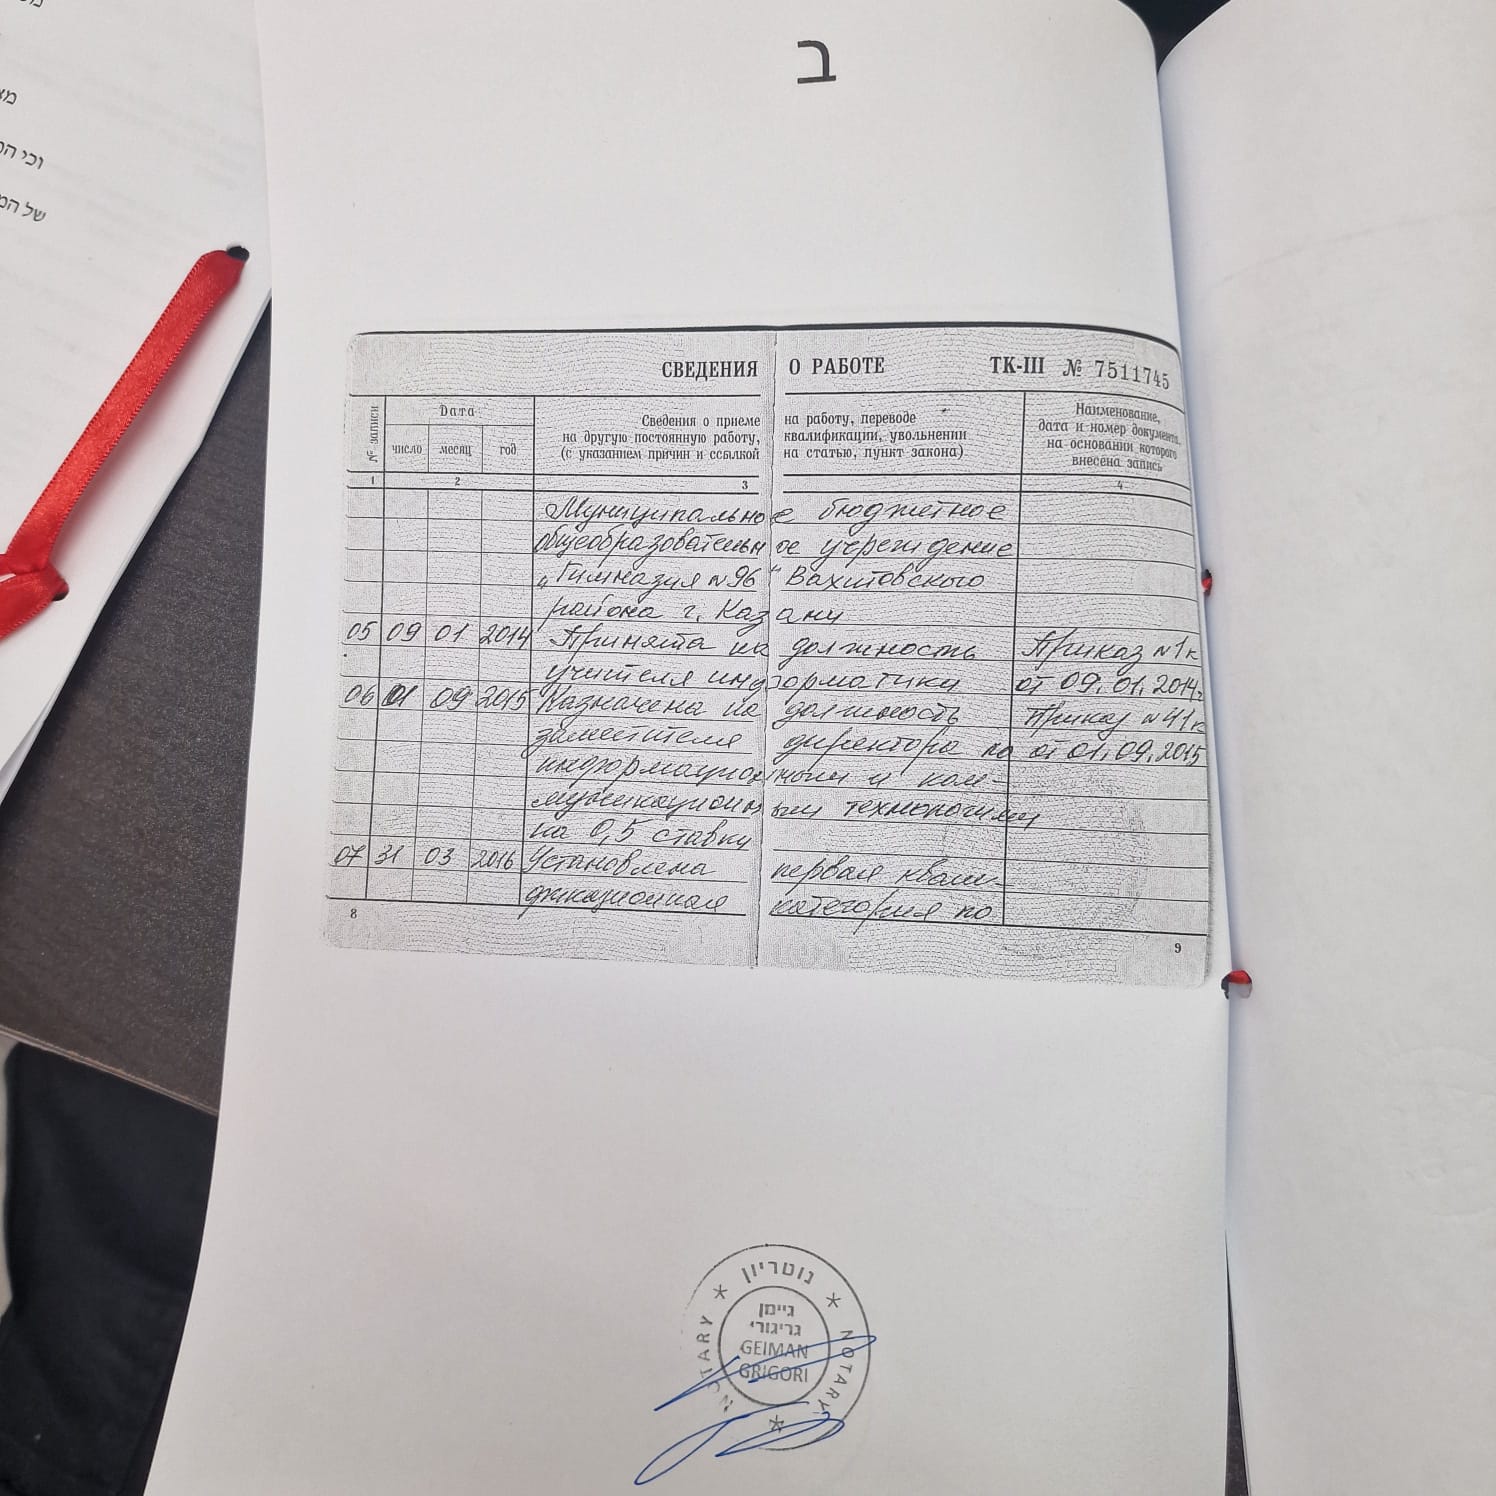 וכי הכ
של המ
ב
СВЕДЕНИЯ О РАБОТЕ ТК-III № 7511745
№ записи
Дата
число месяц год
Сведения о приеме на работу, переводе
на другую постоянную работу, квалификации, увольнении
(с указанием причин и ссылкой на статью, пункт закона)
Наименование,
дата и номер документа,
на основании которого
внесена запись
1 2 3 4
Муниципальное бюджетное
общеобразовательное учреждение
"Гимназия №96" Вахитовского
района г. Казани
05 09 01 2014 Принята на должность Приказ №1к
учителя информатики от 09.01.2014г
06 01 09 2015 Назначена на должность Приказ №41к
заместителя директора по от 01.09.2015
информационным и ком-
муникационным технологиям
на 0,5 ставки
07 31 03 2016 Установлена первая квали-
фикационная категория по
8 9
נוטריון
גיימן
גריגורי
GEIMAN
GRIGORI
NOTARY
NOTARY